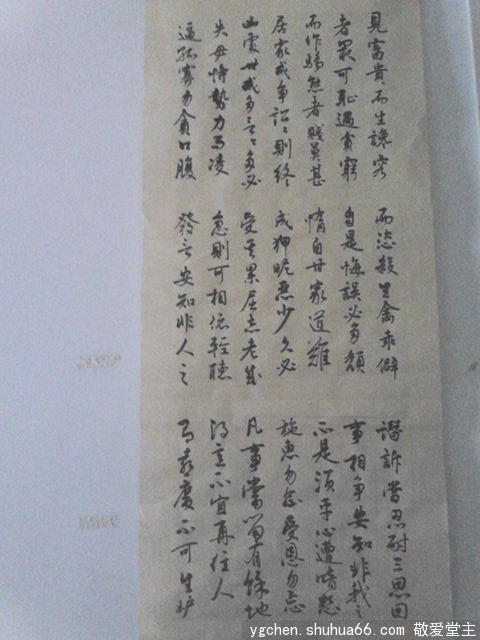 見富貴而生諂容
者最可恥遇貧窮
而作驕態者賤莫甚
居家戒爭訟々則終
凶處世戒多言々多必
失毋恃勢力而凌
逼孤寡勿貪口腹
而恣殺生禽乖僻
自是悔誤必多頹
惰自甘家道難
成狎昵惡少久必
受其累屈志老成
急則可相依輕聽
發言安知非人之
譖訴當忍耐三思因
事相爭安知非我之
不是須平心遭暗想
施惠勿念受恩勿忘
凡事當留有餘地
得意不宜再往人
有喜慶不可生妒
ygchen.shuhua66.com 敬爱堂主